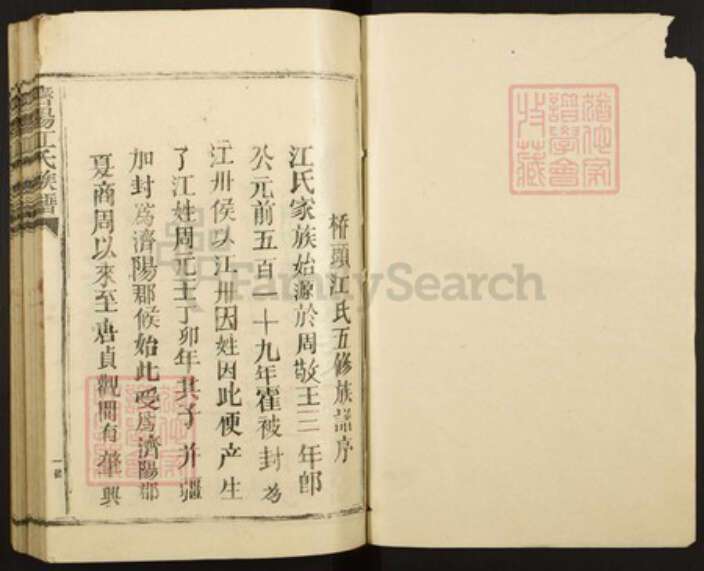 橋頭江氏五修族譜序
江氏家族始源於周敬王三年即
公元前五百一十九年霍被封為
江卅侯以江卅因姓因此便产生
了江姓周元王丁卯年其子并疆
加封為濟陽郡候始此受為濟陽郡
夏商周以來至唐貞觀間有肇興
濟陽江氏族譜
譜學會
收藏
FamilySearch